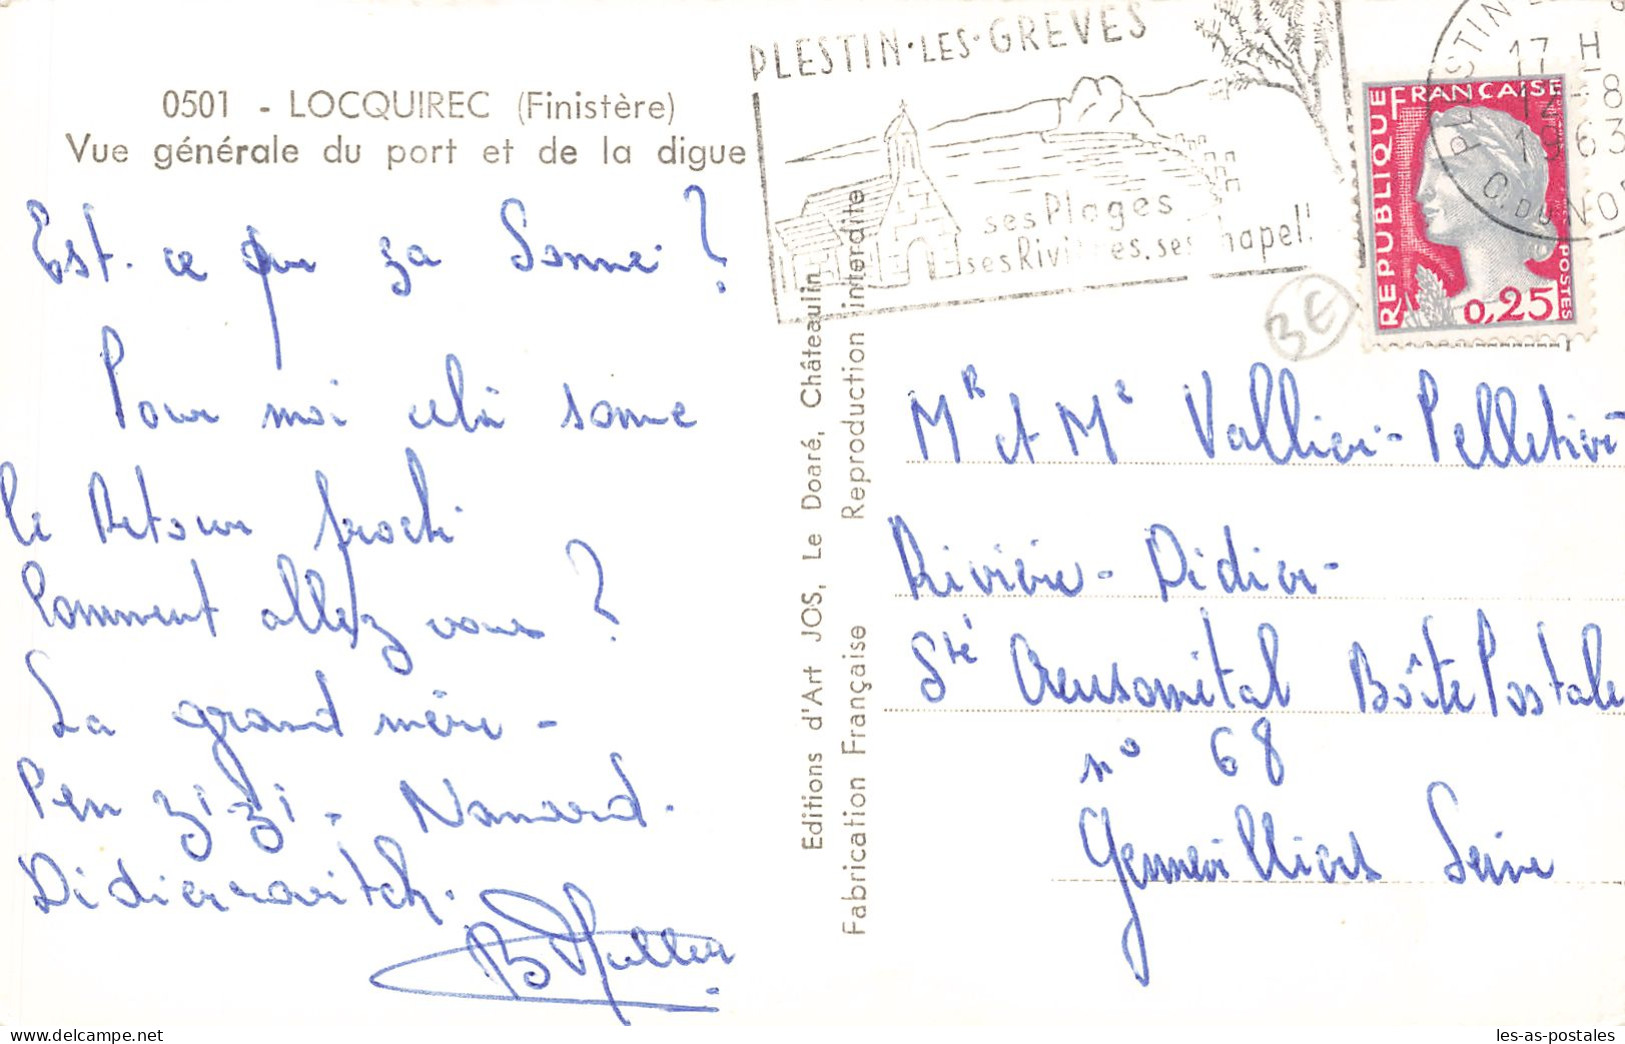 0501 - LOCQUIREC (Finistère)
Vue générale du port et de la digue
Est. ce que za Sonne ?
Pour moi celà sonne
le Retour proche
Comment allez vous ?
La grand mère -
Pen zizi - Nanard.
Didierrovitch.
B Muller
Editions d'Art JOS, Le Doaré, Châteaulin
Fabrication Française Reproduction interdite
PLESTIN·LES·GREVES
ses Plages
ses Rivières, ses chapel
PLESTIN
17 H
12-8
1963
C. DU NOR
REPUBLIQUE FRANÇAISE
POSTES
0,25
3€
MR et Me Vallier - Pelletier
Rivière - Didier -
Sté Creusométal Boîte Postale
n° 68
Gennevilliers Seine
les-as-postales.com